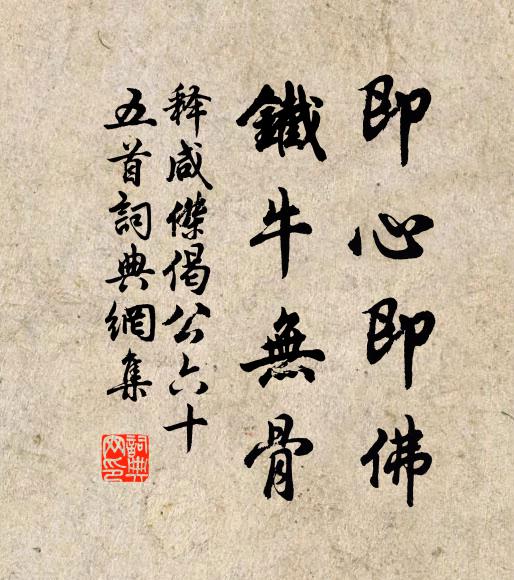 即心即佛
鐵牛無骨
释咸傑偈公六十
五首詞典網集
詞典網印